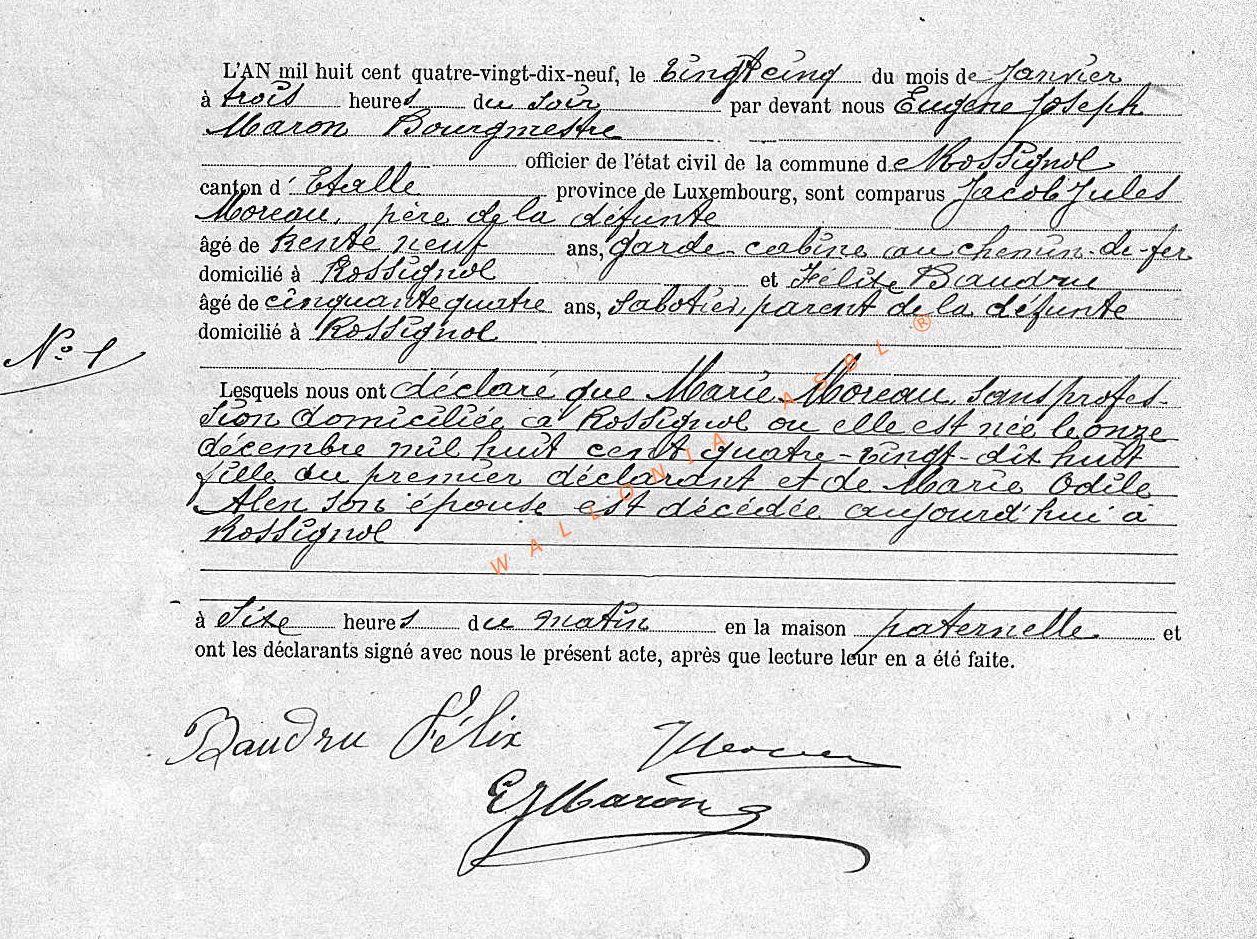 L'AN mil huit cent quatre-vingt-dix-neuf, le vingt cinq du mois de Janvier
à trois heures du soir par devant nous Eugène Joseph
Maron Bourgmestre
officier de l'état civil de la commune de Rossignol
canton d'Etalle province de Luxembourg, sont comparus Jacob Jules
Moreau, père de la défunte
âgé de trente neuf ans, garde-cabine au chemin-de-fer
domicilié à Rossignol et Félix Baudru
âgé de cinquante quatre ans, sabotier, parent de la défunte
domicilié à Rossignol
N° 1
Lesquels nous ont déclaré que Marie Moreau, sans profes-
sion domiciliée à Rossignol ou elle est née le onze
décembre mil huit cent quatre-vingt-dit huit
fille du premier déclarant et de Marie Odile
Alen son épouse est décédée aujourd'hui à
Rossignol
à Six heures du matin en la maison paternelle et
ont les déclarants signé avec nous le présent acte, après que lecture leur en a été faite.
Baudru Félix
JMoreau
EJMaron
WALLONIA ASBL ®